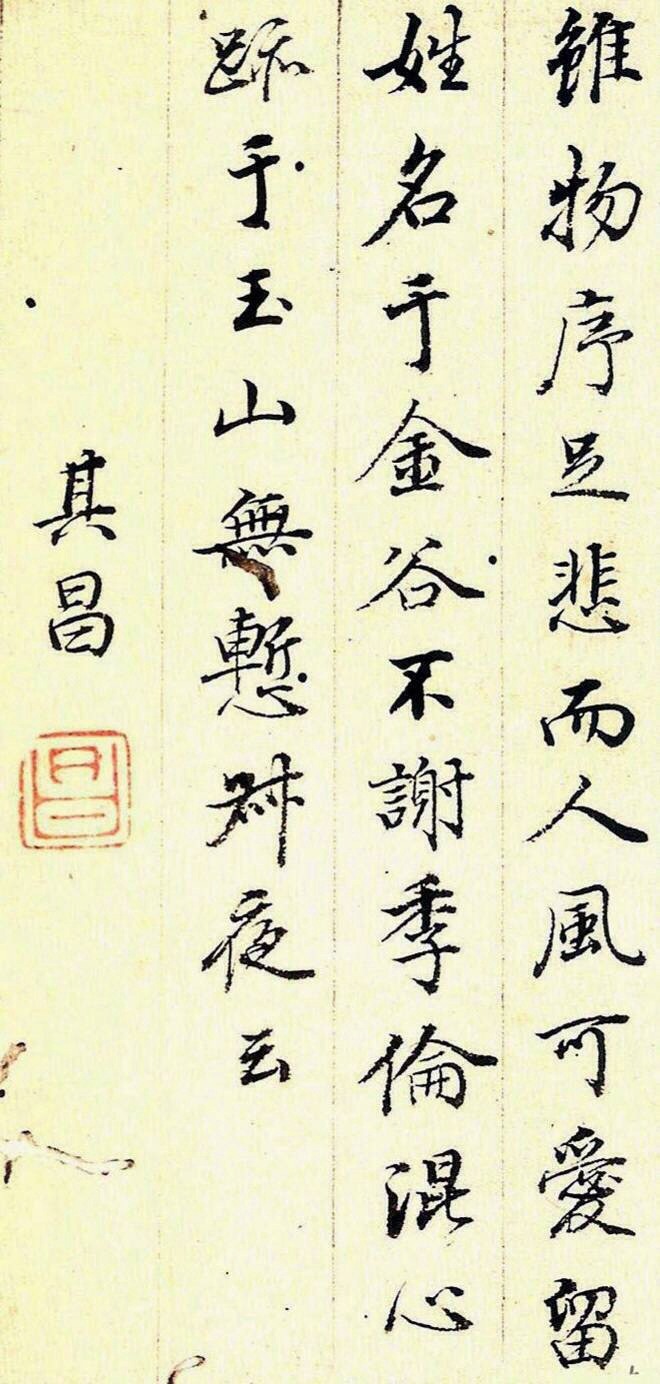 雖物序足悲而人風可愛留
姓名于金谷不謝季倫混心
跡于玉山無慙叔夜云
其昌
昌